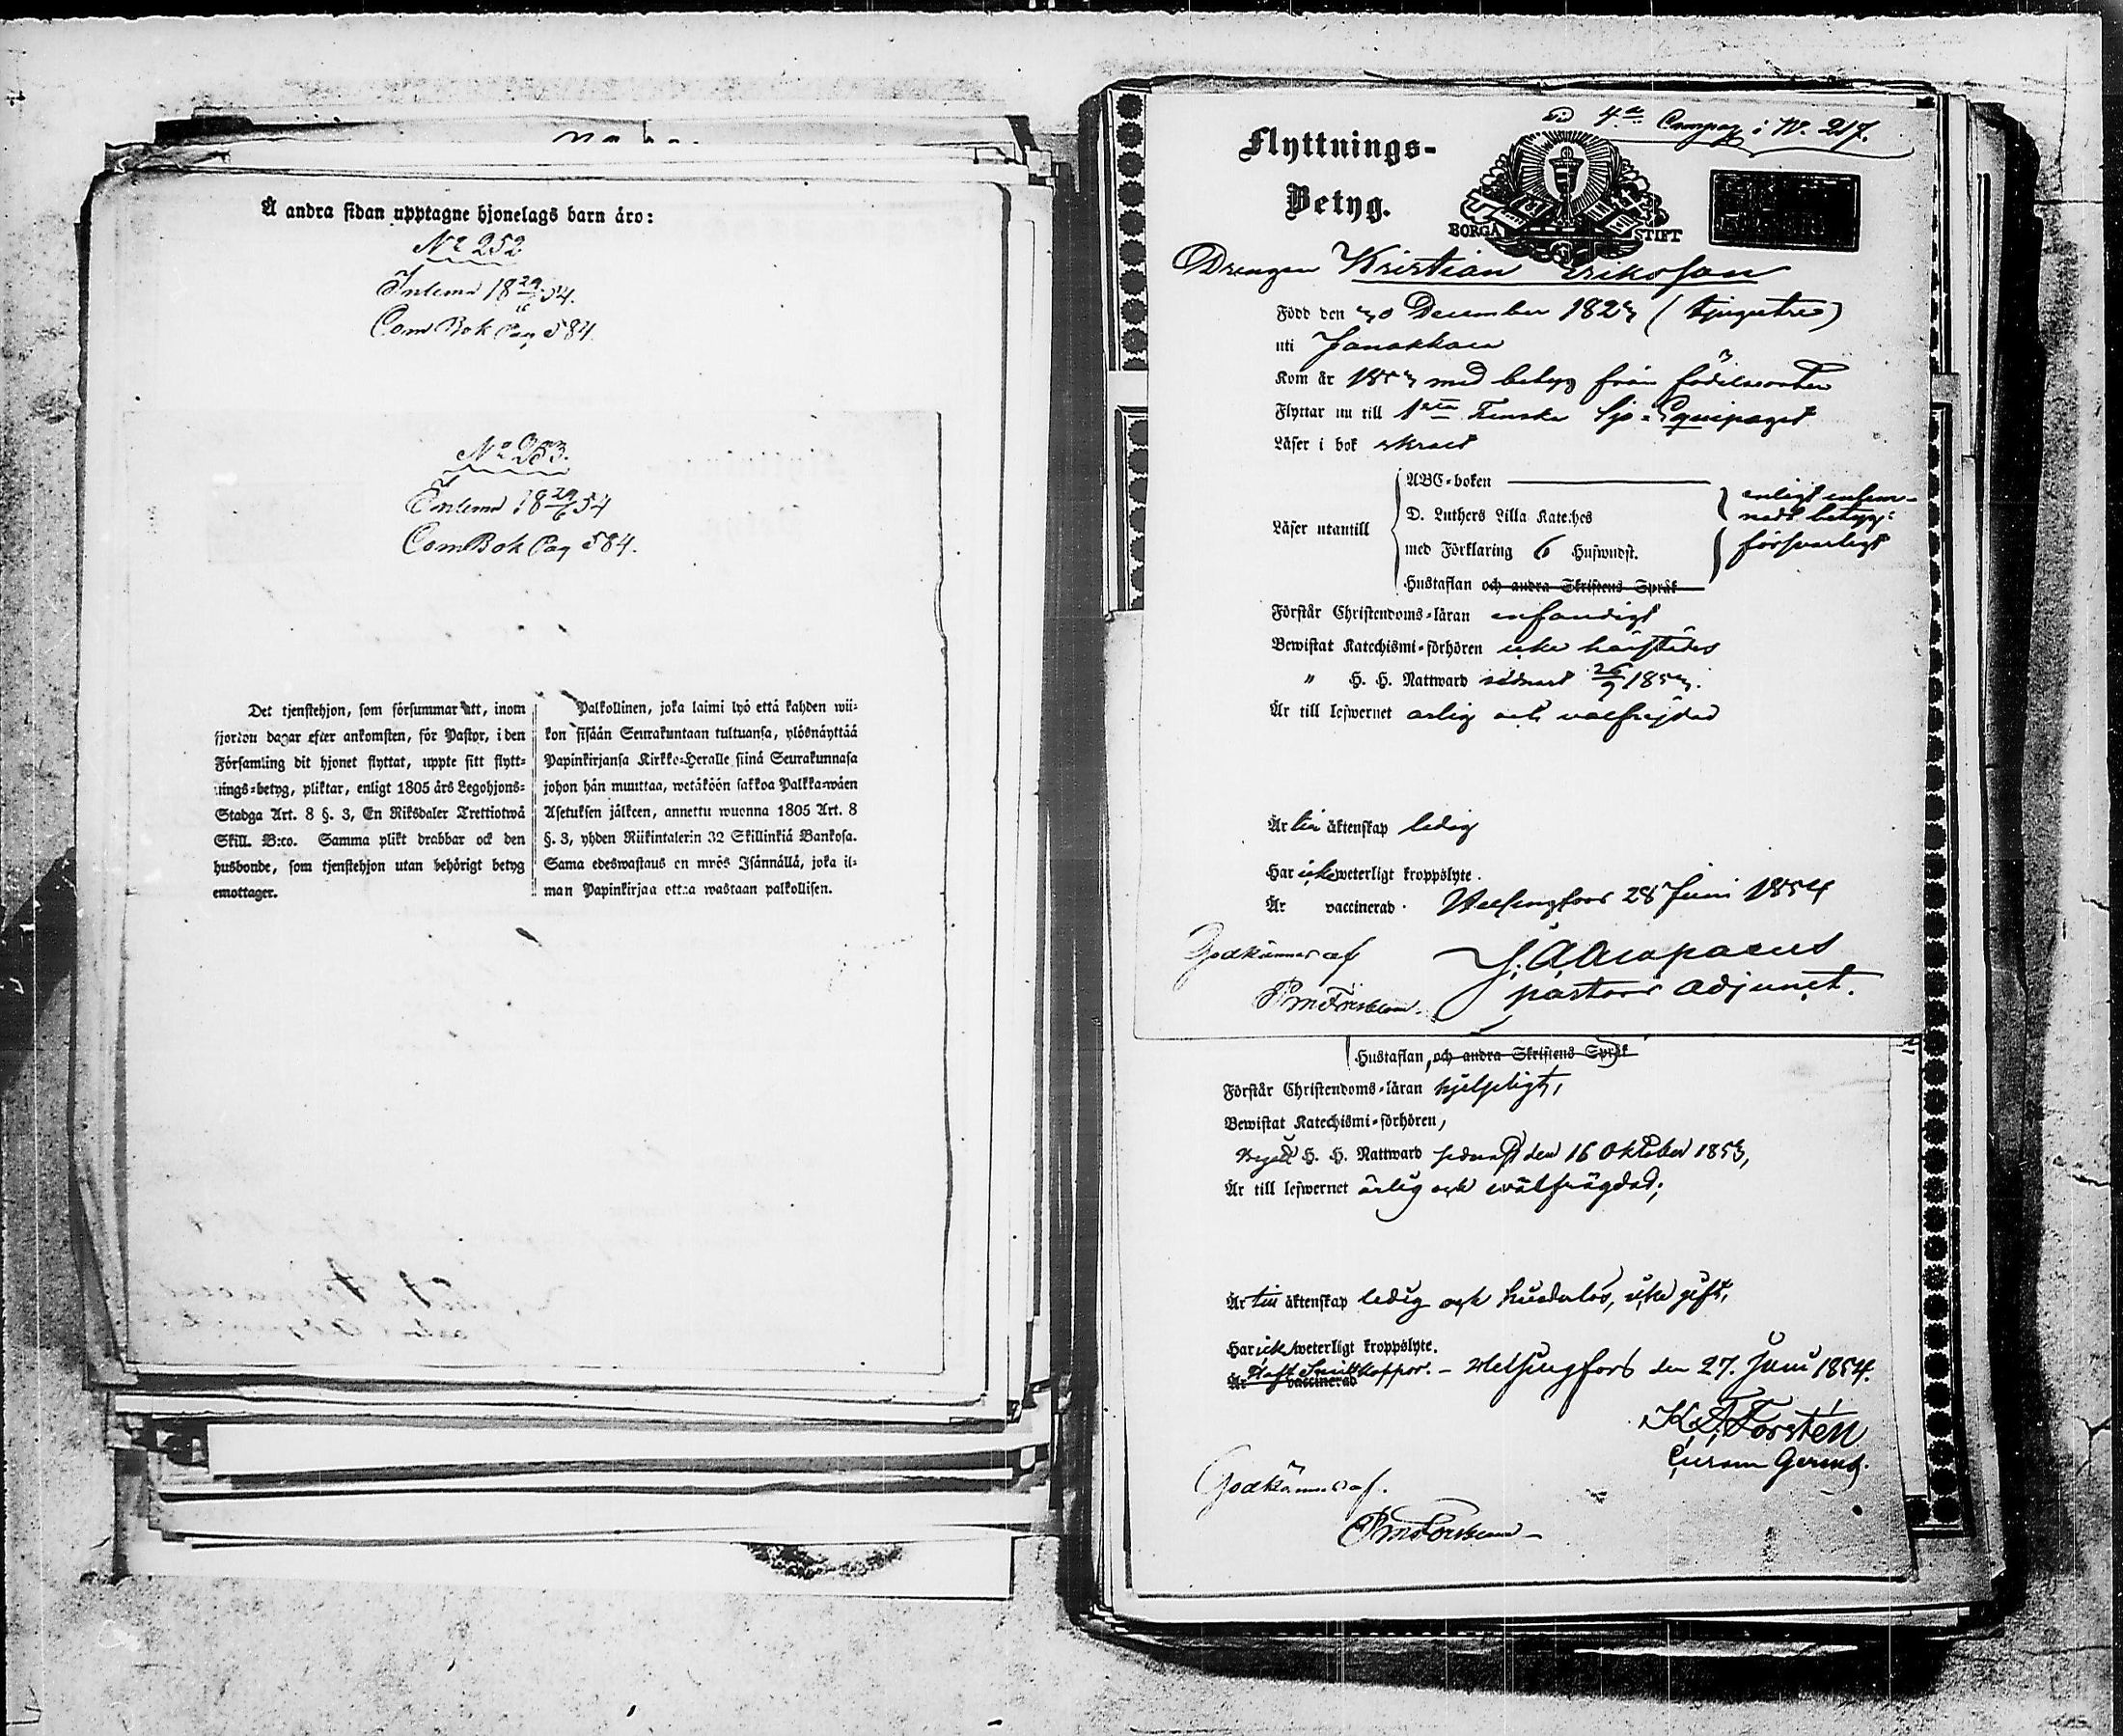 Å andra sidan upptagne hjonelags barn äro:
No 252
Inlemd 18 29/6 54.
Com Bok Pag 584.
No 253.
Inlemd 18 29/6 54
Com Bok Pag 584.
Det tjenstehjon, som försummar att, inom
fjorton dagar efter ankomsten, för Pastor, i den
Församling dit hjonet flyttat, uppte sitt flytt-
nings-betyg, pliktar, enligt 1805 års Legohjons-
Stadga Art. 8 §. 3, En Riksdaler Trettiotwå
Skill. B:co. Samma plikt drabbar ock den
husbonde, som tjenstehjon utan behörigt betyg
emottager.
Palkollinen, joka laimi lyö että kahden wii-
kon sisään Seurakuntaan tultuansa, ylösnäyttää
Papinkirjansa Kirkko-Heralle siinä Seurakunnasa
johon hän muuttaa, wetäköön sakkoa Palkka-wäen
Asetuksen jälkeen, annettu wuonna 1805 Art. 8
§. 3, yhden Riikintalerin 32 Skillinkiä Bankosa.
Sama edeswastaus on myös Isännällä, joka il-
man Papinkirjaa ottaa wastaan palkollisen.
4de Compag i N. 217.
Flyttnings-
Betyg.
BORGÅ STIFT
Drengen Kristian Eriksson
Född den 30 December 1823 (tjugutre)
uti Janakkala
Kom år 1853 med betyg från födelseorten
Flyttar nu till 1sta Finska Sjö-Equipaget
Läser i bok
ABC-boken
D. Luthers Lilla Kateches
Läser utantill
med Förklaring 6 Hufwudst.
Hustaflan och andra Skriftens Språk
enligt inlem-
nadt betyg:
försvarligt
Förstår Christendoms-läran enfaldigt
Bewistat Katechismi-förhören icke härstädes
" H. H. Nattward sednast 26/9 1853.
Är till lefwernet ärlig och välfrejdad
Är till äktenskap ledig
Har icke weterligt kroppslyte.
Är vaccinerad. Helsingfors 28 Juni 1854
Godkännes af
pastors adjunct.
Hustaflan, och andra Skriftens Språk
Förstår Christendoms-läran hjelpligt,
Bewistat Katechismi-förhören,
Begått H. H. Nattward sednast den 16 Oktober 1853,
Är till lefwernet ärlig och wälfrägdad;
Är till äktenskap ledig och hinderlös, icke gift,
Har icke weterligt kroppslyte.
Är vaccinerad Haft Smittkoppor. – Helsingfors den 27. Juni 1854.
K. F. Forstén
Godkännes af.